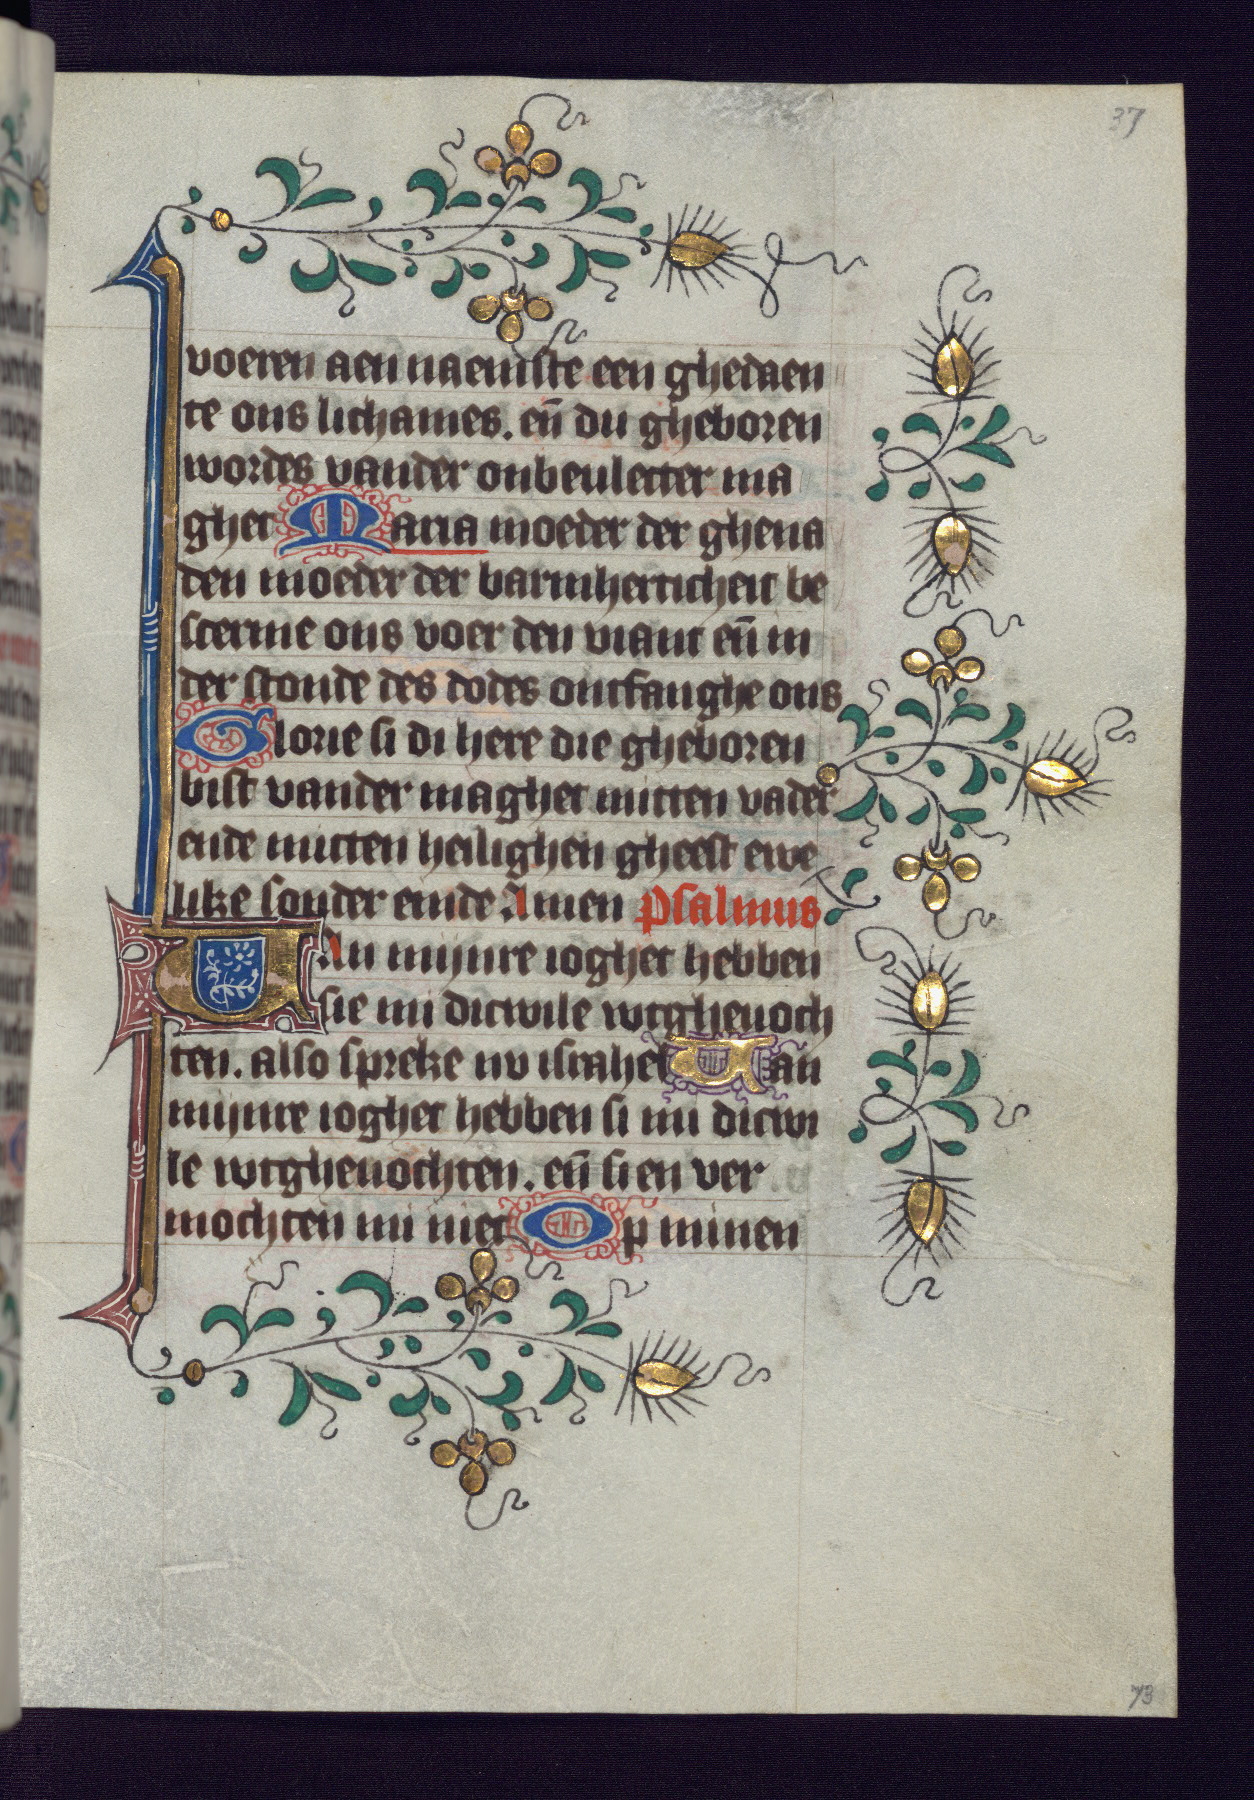 37
voeren aen naemste een ghedaen
te ons lichames. eñ du gheboren
wordes vander onbeulecter ma
ghet Maria moeder der ghena
den moeder der barmherticheit be
scerme ons voer den viant eñ in
der stonde des dodes ontfanghe ons
Glorie si di here die gheboren
bist vander maghet mitten vader
ende mitten heilighen gheest ewe
like sonder einde Amen Psalmus
VAn mijnre iogher hebben
sie mi dicwile wtgheuoch
ten. also spreke nv israhel Van
mijnre ioghet hebben si mi dicwi
le wtgheuochten. eñ si en ver
mochten mi niet Op minen
73